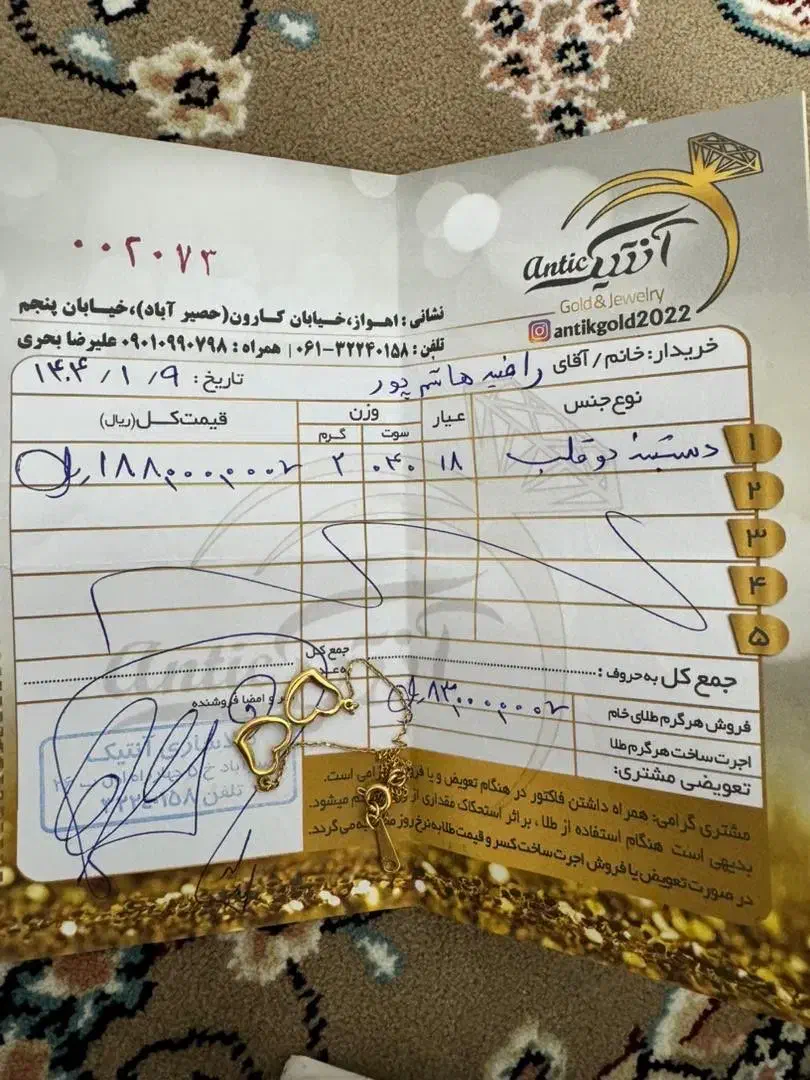 ۰۰۲۰۷۳
آنتیک Antic
Gold & Jewelry
antikgold2022
نشانی : اهواز،خیابان کارون(حصیر آباد)،خیابان پنجم
تلفن : ۳۲۲۴۰۱۵۸-۰۶۱ | همراه : ۰۹۰۱۰۹۹۰۷۹۸ علیرضا بحری
خریدار: خانم / آقای راضیه هاشم پور
تاریخ : ۱۴۰۴/۱/۹
نوع جنس عیار وزن قیمت کل (ریال)
سوت گرم
۱ دستبند دو قلب ۱۸ ۰۴۰ ۲ ۱۸۸,۰۰۰,۰۰۰
۲
۳
۴
۵
جمع کل به حروف :
جمع کل
فروش هر گرم طلای خام ۸۳,۰۰۰,۰۰۰
و امضا فروشنده
اجرت ساخت هر گرم طلا
تعویضی مشتری:
آنتیک
تلفن
مشتری گرامی: همراه داشتن فاکتور در هنگام تعویض و یا است.
بدیهی است هنگام استفاده از طلا ، براثر استحکاک مقداری از میشود.
در صورت تعویض یا فروش اجرت ساخت کسر و قیمت طلا به نرخ روز می گردد.